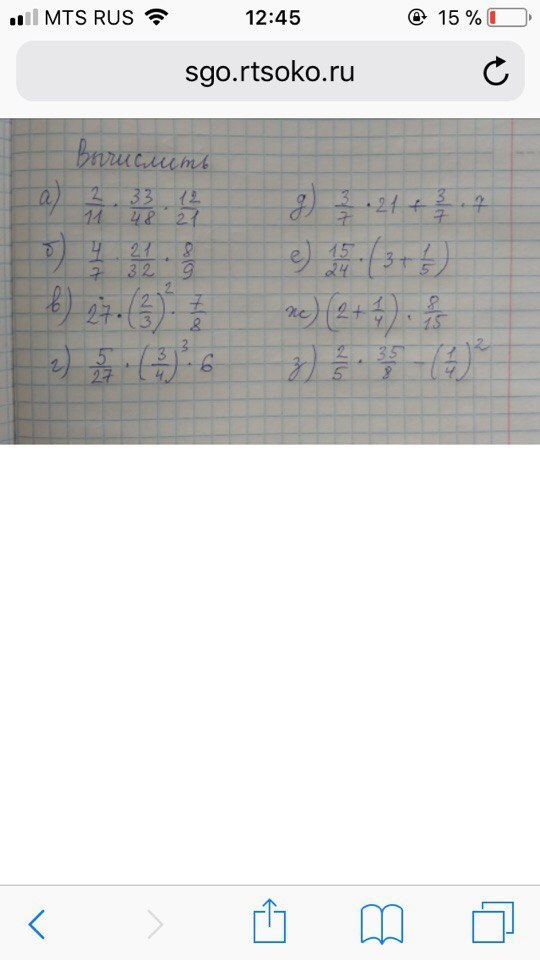 MTS RUS 12:45 15 %
sgo.rtsoko.ru
Вычислить
а) 2/11 · 33/48 · 12/21
б) 4/7 · 21/32 · 8/9
в) 27 · (2/3)² · 7/8
г) 5/27 · (3/4)³ · 6
д) 3/7 · 21 + 3/7 · 7
е) 15/24 · (3 + 1/5)
ж) (2 + 1/4) · 8/15
з) 2/5 · 35/8 − (1/4)²